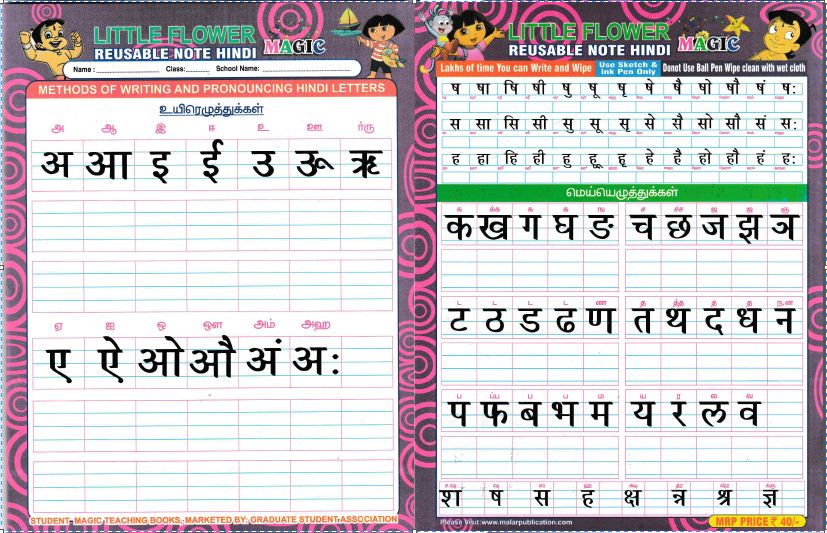 LITTLE FLOWER
REUSABLE NOTE HINDI MAGIC
Name : Class: School Name:
METHODS OF WRITING AND PRONOUNCING HINDI LETTERS
உயிரெழுத்துக்கள்
அ ஆ இ ஈ உ ஊ ர்ரு
अ आ इ ई उ ऊ ऋ
ஏ ஐ ஒ ஔ அம் அஹ
ए ऐ ओ औ अं अः
STUDENT MAGIC TEACHING BOOKS, MARKETED BY: GRADUATE STUDENT ASSOCIATION
LITTLE FLOWER
REUSABLE NOTE HINDI MAGIC
Lakhs of time You can Write and Wipe Use Sketch & Ink Pen Only Donot Use Ball Pen Wipe clean with wet cloth
ष षा षि षी षु षू षृ षे षै षो षौ षं षः
स सा सि सी सु सू सृ से सै सो सौ सं सः
ह हा हि ही हु हू हृ हे है हो हौ हं हः
மெய்யெழுத்துக்கள்
க க்க க க ங
क ख ग घ ङ च छ ज झ ञ
ட ட ட ட ண த த்த த த ந,ன
ट ठ ड ढ ण त थ द ध न
ப ப்ப ப ப ம ய ர ல வ
प फ ब भ म य र ल व
श ष स ह क्ष त्र श्र ज्ञ
Please Visit:www.malarpublication.com
MRP PRICE ₹ 40/-